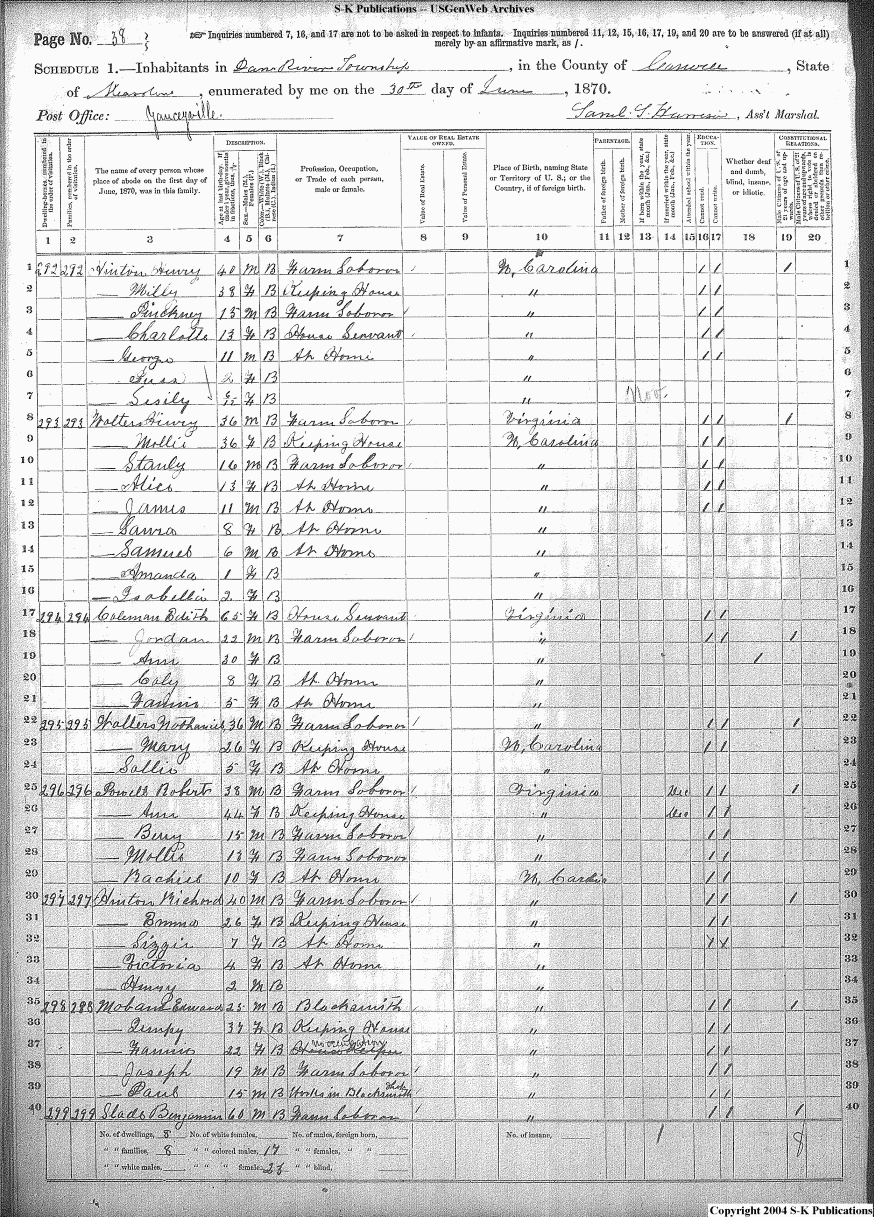 S-K Publications -- USGenWeb Archives
Page No. 38
Inquiries numbered 7, 16, and 17 are not to be asked in respect to infants. Inquiries numbered 11, 12, 15, 16, 17, 19, and 20 are to be answered (if at all)
merely by an affirmative mark, as /.
SCHEDULE 1.—Inhabitants in Dan River Township, in the County of Caswell, State
of N Carolina, enumerated by me on the 30th day of June, 1870.
Post Office: Yanceyville. Saml. S. Harrison, Ass't Marshal.
DESCRIPTION. VALUE OF REAL ESTATE OWNED. PARENTAGE. EDUCATION. CONSTITUTIONAL RELATIONS.
Dwelling-houses, numbered in the order of visitation.
Families, numbered in the order of visitation.
The name of every person whose place of abode on the first day of June, 1870, was in this family.
Profession, Occupation, or Trade of each person, male or female.
Value of Real Estate.
Value of Personal Estate.
Place of Birth, naming State or Territory of U. S.; or the Country, if of foreign birth.
Father of foreign birth.
Mother of foreign birth.
Whether deaf and dumb, blind, insane, or idiotic.
1 2 3 4 5 6 7 8 9 10 11 12 13 14 15 16 17 18 19 20
1 292 292 Hinton Henry 40 M B Farm Laborer N. Carolina / / / 1
2 — Milly 38 F B Keeping House " / / 2
3 — Pinckney 15 M B Farm Laborer " / / 3
4 — Charlotte 13 F B House Servant " / / 4
5 — George 11 M B At Home " / / 5
6 — 2 F B " 6
7 — Sisily F B " Nov. 7
8 293 293 Walters Henry 36 M B Farm Laborer Virginia / / / 8
9 — Mollie 36 F B Keeping House N. Carolina / / 9
10 — Stanly 16 M B Farm Laborer " / / 10
11 — Alice 13 F B At Home " / / 11
12 — James 11 M B At Home " / / 12
13 — Laura 8 F B At Home " 13
14 — Samuel 6 M B At Home " 14
15 — Amanda 1 F B " 15
16 — Isabella 2 F B " 16
17 294 294 Coleman Edith 65 F B House Servant Virginia / / 17
18 — Jordan 22 M B Farm Laborer " / / / 18
19 — Ann 30 F B " / 19
20 — Caly 8 F B At Home " 20
21 — Fannie 5 F B At Home " 21
22 295 295 Walters Nathaniel 36 M B Farm Laborer " / / / 22
23 — Mary 26 F B Keeping House N. Carolina / / 23
24 — Sallie 5 F B At Home " 24
25 296 296 Powell Robert 38 M B Farm Laborer Virginia Dec / / / 25
26 — Ann 44 F B Keeping House " Dec / / 26
27 — Berry 15 M B Farm Laborer " / / 27
28 — Mollie 13 F B Farm Laborer " / / 28
29 — 10 F B At Home N. Carolina / / 29
30 297 297 Hinton Richard 40 M B Farm Laborer " / / / 30
31 — Emma 26 F B Keeping House " / / 31
32 — Lizzie 7 F B At Home " 32
33 — Victoria 4 F B At Home " 33
34 — Henry 2 M B " 34
35 298 298 Mobane Edward 25 M B Blacksmith " / / / 35
36 — 37 F B Keeping House " / / 36
37 — Fannie 22 F B House Keeper " / / 37
38 — Joseph 19 M B Farm Laborer " / / 38
39 — Paul 15 M B Works in Blacksmith Shop " / / 39
40 299 299 Slade Benjamin 60 M B Farm Laborer " / / / 40
No. of dwellings, 8 No. of white females, No. of males, foreign born, No. of insane, 1 8
" " families, 8 " " colored males, 17 " " females, " "
" " white males, " " females, 23 " " blind,
Copyright 2004 S-K Publications